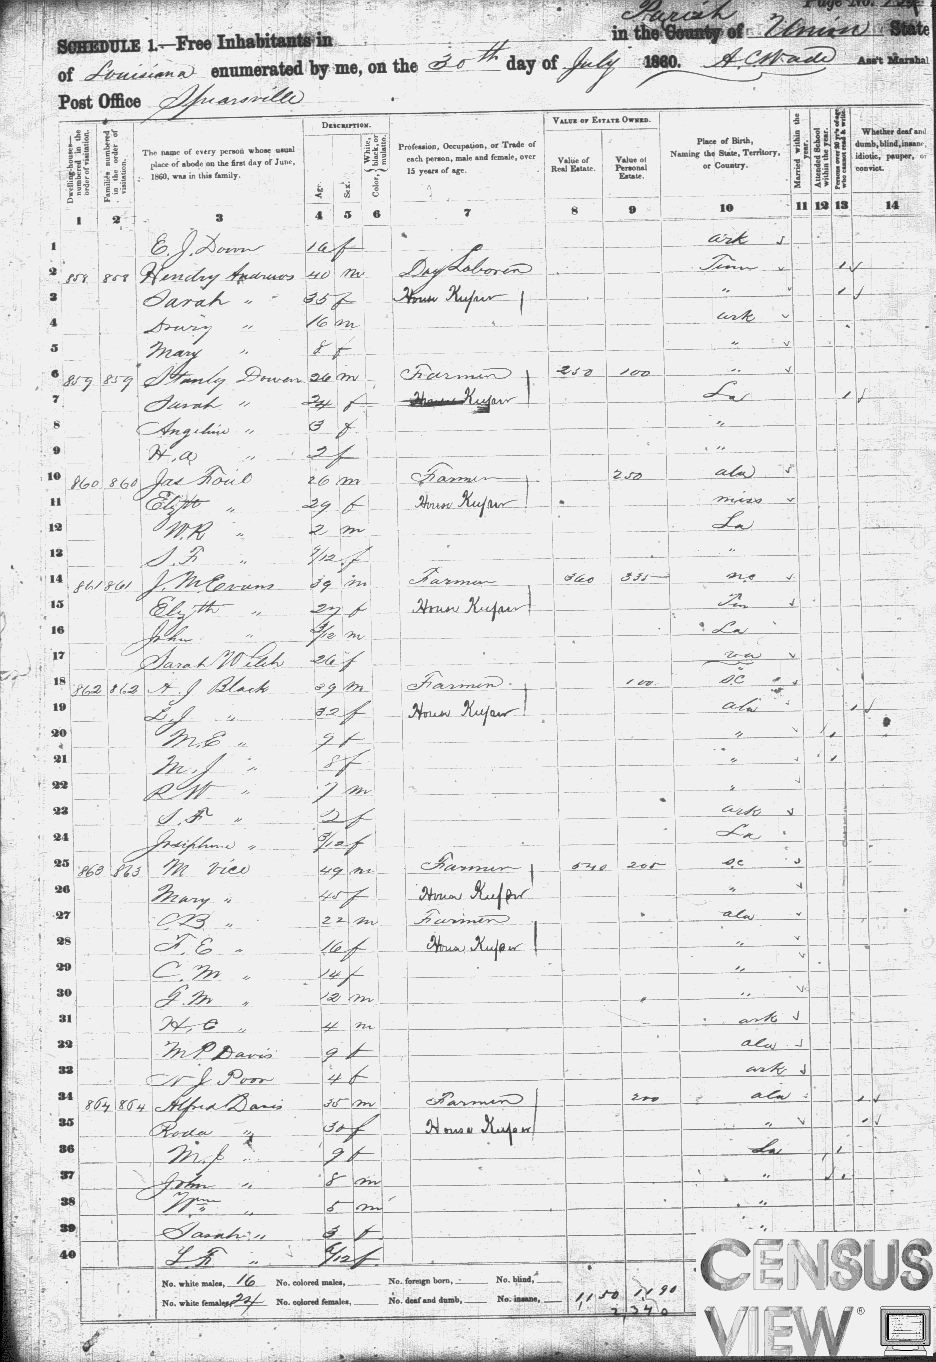 Page No.
SCHEDULE 1.—Free Inhabitants in Parish in the County of Union State
of Louisiana enumerated by me, on the 30th day of July 1860. A.C. Wade Ass't Marshal
Post Office Spearsville
Dwelling-houses—numbered in the order of visitation.
Families numbered in the order of visitation.
The name of every person whose usual place of abode on the first day of June, 1860, was in this family.
DESCRIPTION.
Age.
Sex.
Color, White, black, or mulatto.
Profession, Occupation, or Trade of each person, male and female, over 15 years of age.
VALUE OF ESTATE OWNED.
Value of Real Estate.
Value of Personal Estate.
Place of Birth, Naming the State, Territory, or Country.
Married within the year.
Attended School within the year.
Persons over 20 y'rs of age who cannot read & write.
Whether deaf and dumb, blind, insane, idiotic, pauper, or convict.
1 2 3 4 5 6 7 8 9 10 11 12 13 14
1 E. J. 16 f ark
2 858 858 Hendry Andrews 40 m Day Laborer Tenn 1
3 Sarah " 35 f House Keeper " 1
4 Drury " 16 m ark
5 Mary " 8 f "
6 859 859 Stanly 26 m Farmer 250 100 "
7 Sarah " 24 f House Keeper La 1
8 Angeline " 3 f "
9 H. a " 2 f "
10 860 860 Jas 26 m Farmer 250 ala
11 Elizth " 29 f House Keeper miss
12 W. R " 2 m La
13 S. F " /12 f "
14 861 861 J. M. Evans 39 m Farmer 360 335 nc
15 Elizth " 27 f House Keeper Ten
16 John " 3/12 m La
17 Sarah Welch 26 f
18 862 862 A. J Black 39 m Farmer 100 SC
19 L. J " 32 f House Keeper ala 1
20 M. E " 9 f " 1
21 M. J " 8 f " 1
22 R W " 7 m "
23 S. F " 2 f ark
24 Josiphine " 3/12 f La
25 863 863 M Vice 49 m Farmer 540 205 SC
26 Mary " 45 f House Keeper "
27 C B " 22 m Farmer ala
28 F. E " 16 f House Keeper "
29 C. M " 14 f "
30 G. M " 12 m "
31 H. C " 4 m ark
32 M P Davis 9 f ala
33 N J Poor 4 f ark
34 864 864 Alfred Davis 35 m Farmer 200 ala 1
35 Roda " 30 f House Keeper " 1
36 M. J " 9 f La 1
37 John " 8 m " 1
38 Wm " 5 m "
39 Sarah " 3 f "
40 L F " /12 f
No. white males, 16 No. colored males, No. foreign born, No. blind,
No. white females, 24 No. colored females, No. deaf and dumb, No. insane, 1150 1190
2,340
CENSUS
VIEW®